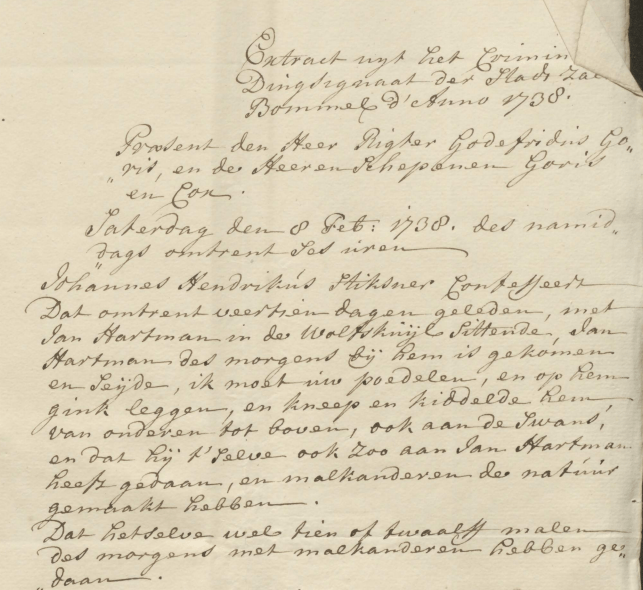 Extract uyt het Crimin
Dingsignaat der Stadt Zal
Bommel d'Anno 1738.
Præsent den Heer Rigter Godefridus Go„
„ris, en de Heeren Schepenen Goris
en Cox.
Saterdag den 8 Feb: 1738. des namid„
„dags omtrent ses uren
Johannes Hendrikus Stiksner Confesseert
Dat omtrent veertien dagen geleden, met
Jan Hartman in de Wolfskuijl Sittende, Jan
Hartman des morgens bij hem is gekomen
en Seijde, ik moet uw poedelen, en op hem
gink leggen, en kneep en kiddelde hem
van onderen tot boven, ook aan de Swans,
en dat hij t'Selve ook zoo aan Jan Hartman
heeft gedaan, en malkanderen de natuur
gemaakt hebben.
Dat hetselve wel tien of twaalff malen
des morgens met malkanderen hebben ge„
„daan.